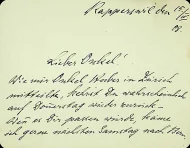 Rapperswil den 15/IX
08.
Lieber Onkel!
Wie mir Onkel in Zürich
mitteilte, kehrst Du wahrscheinlich
auf Donnerstag wieder zurück.
Wenn es Dir passen würde, käme
ich gerne nächsten Samstag nach